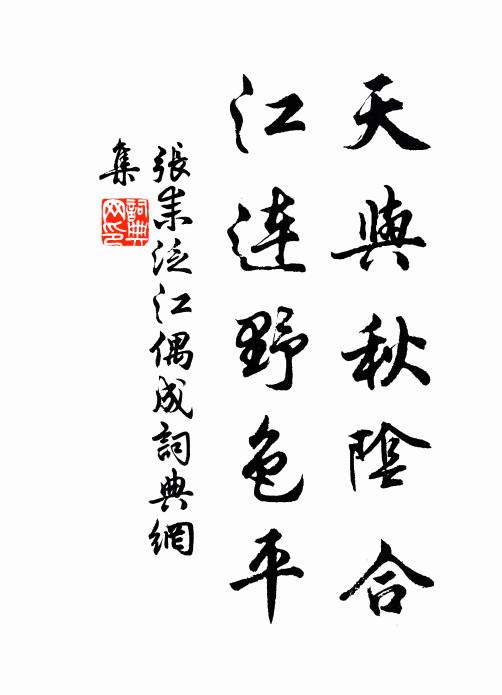 天與秋陰合
江連野色平
張耒泛江偶成詞典網
集
詞典
网印